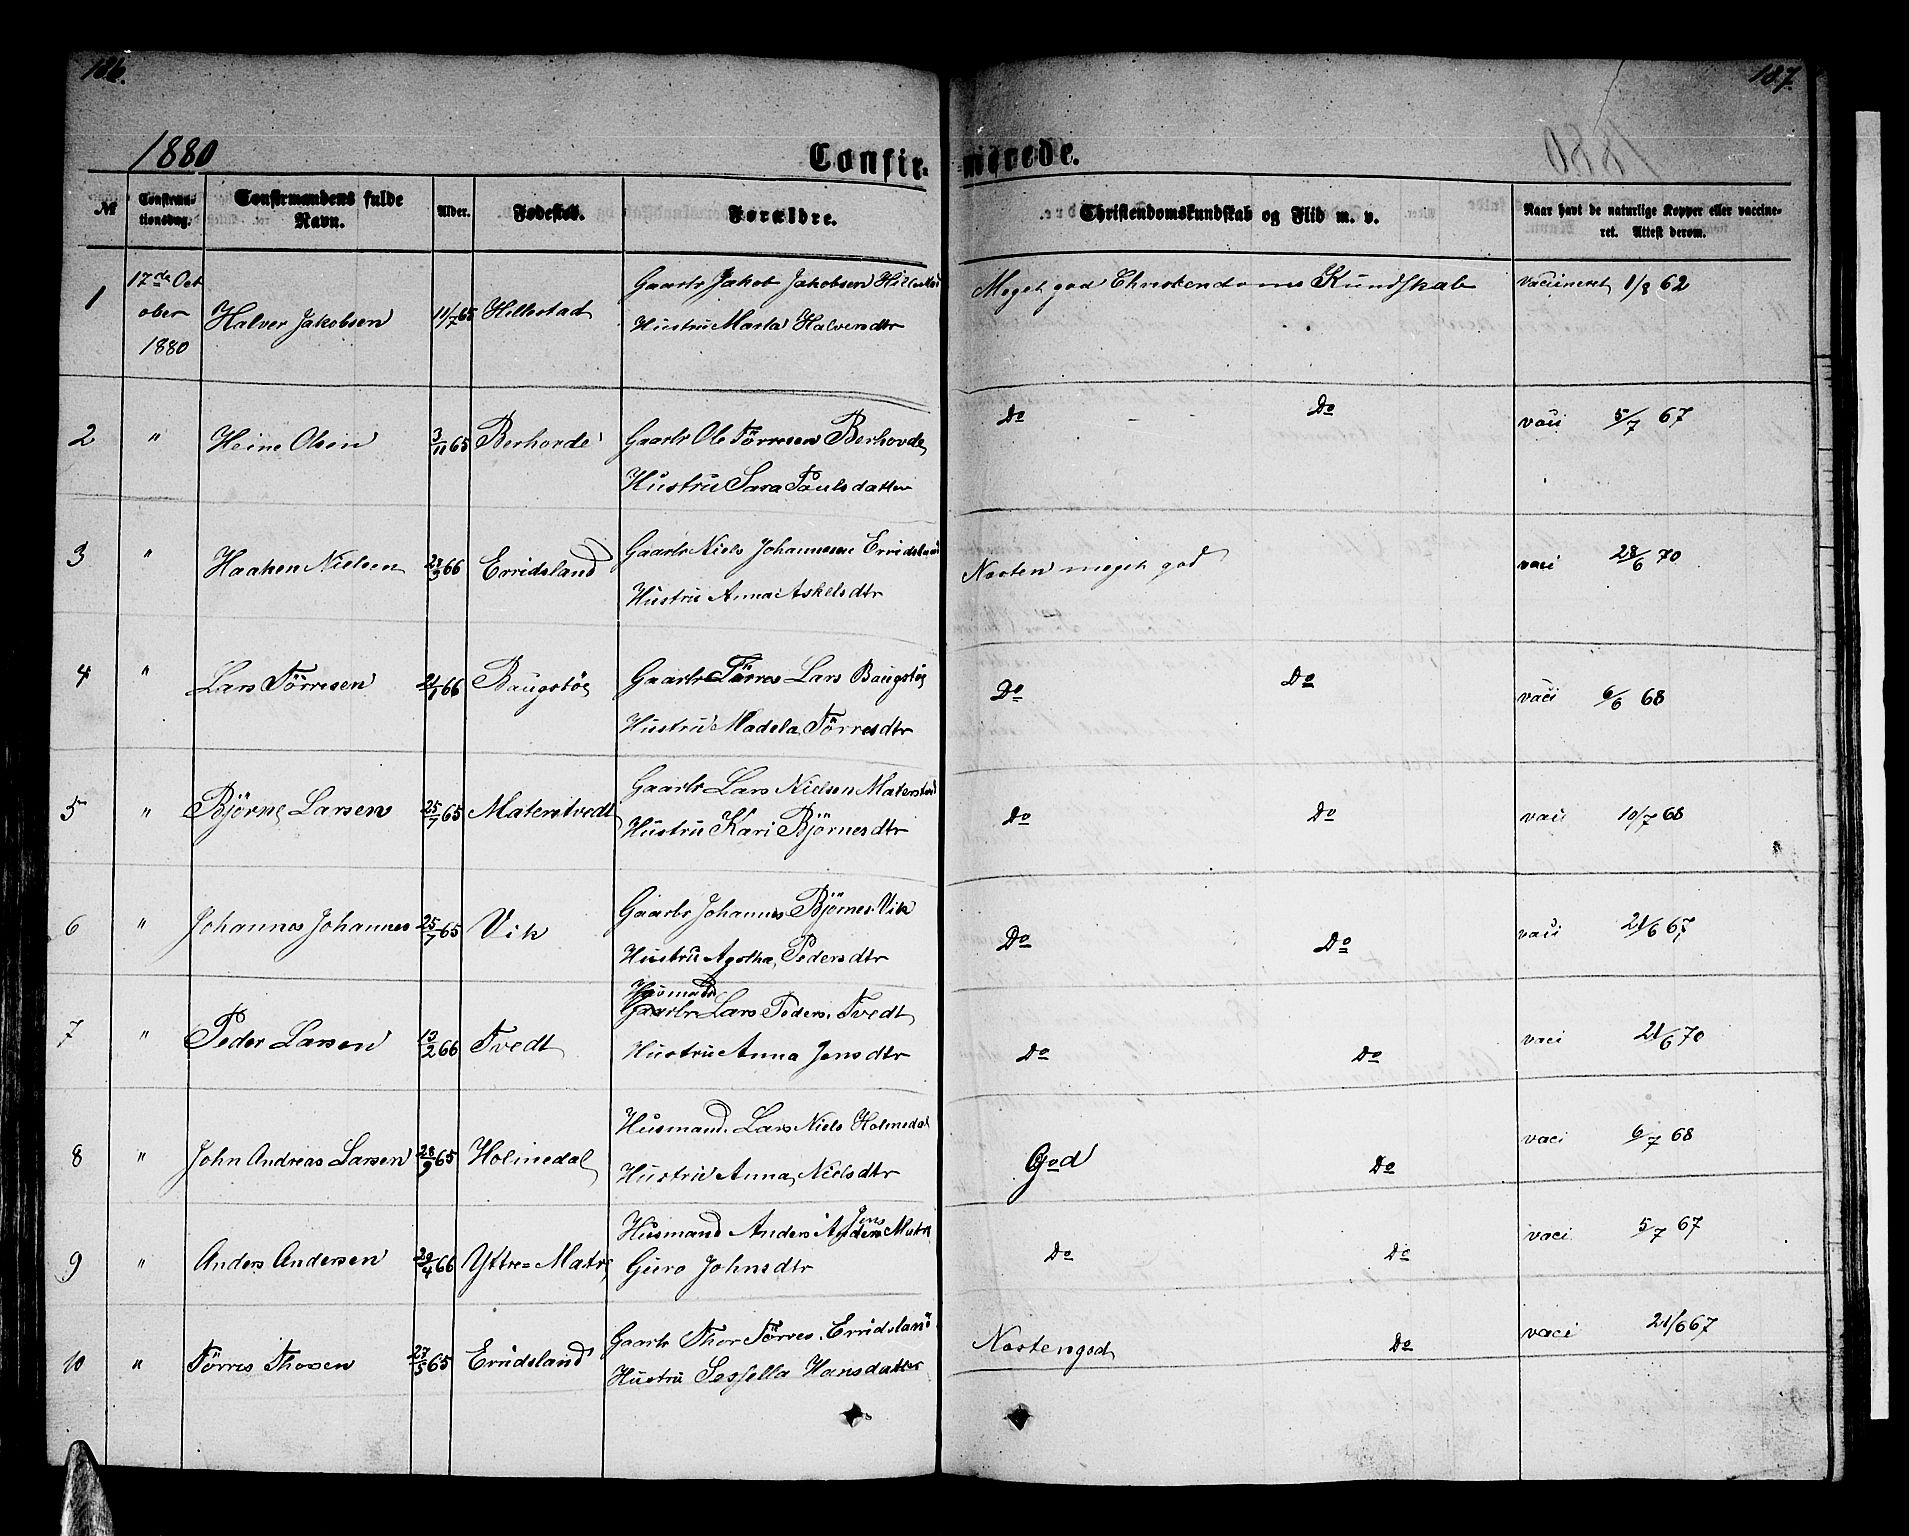 186.
187.
1880
Confirmerede.
№ Confirmationsdag. Confirmandens fulde Navn. Alder. Fødested. Forældre. Christendomskundskab og Flid m. v. Naar havt de naturlige Kopper eller vaccineret. Attest derom.
1 17de October 1880 Halver Jakobsen 11/7 65 Hillestad Gaarbr Jakob Jakobsen
Hustru Marta Halversdtr Meget god Christendoms Kundskab vaccineret 1/8 62
2 " Heine Olsen 3/11 65 Berhovde Gaarbr Ole Törresen Berhovde
Hustru Sara Paulsdatter Do - Do vaci 5/7 67
3 " Haaken Nielsen 66 Erridsland Gaarbr Niels Johannesen Erridsland
Hustru Anna Askelsdtr Næsten meget god vaci 28/6 70
4 " Lars Törresen 21/1 66 Baugstöe Gaarbr Törres Lars Baugstöe
Hustru Madela Törresdtr Do Do vaci 6/6 68
5 " Björne Larsen 25/7 65 Materstvedt Gaarbr Lars Nielsen
Hustru Kari Björnesdtr Do Do vaci 10/7 68
6 " Johannes Johannes 25/7 65 Vik Gaarbr Johannes Björnes. Vik
Hustru Agatha Pedersdtr Do Do vaci 21/6 67
7 " Peder Larsen 13/2 66 Tvedt Husmand
Gaarbr Lars Peders. Tvedt
Hustru Anna Jensdtr Do Do vaci 21/6 70
8 " John Andreas Larsen 28/9 65 Holmedal Husmand. Lars Niels Holmedal
Hustru Anna Nielsdtr God Do vaci 6/7 68
9 " Anders Andersen 20/4 66 Yttre=Matre Husmand Anders Jens Matre
Guro Johnsdtr Do Do vaci 5/7 67
10 " Törres Thosen 27/5 65 Erridsland Gaarbr Thor Törres. Erridsland
Hustru Sessella Hansdatter Næsten god Do vaci 21/6 67